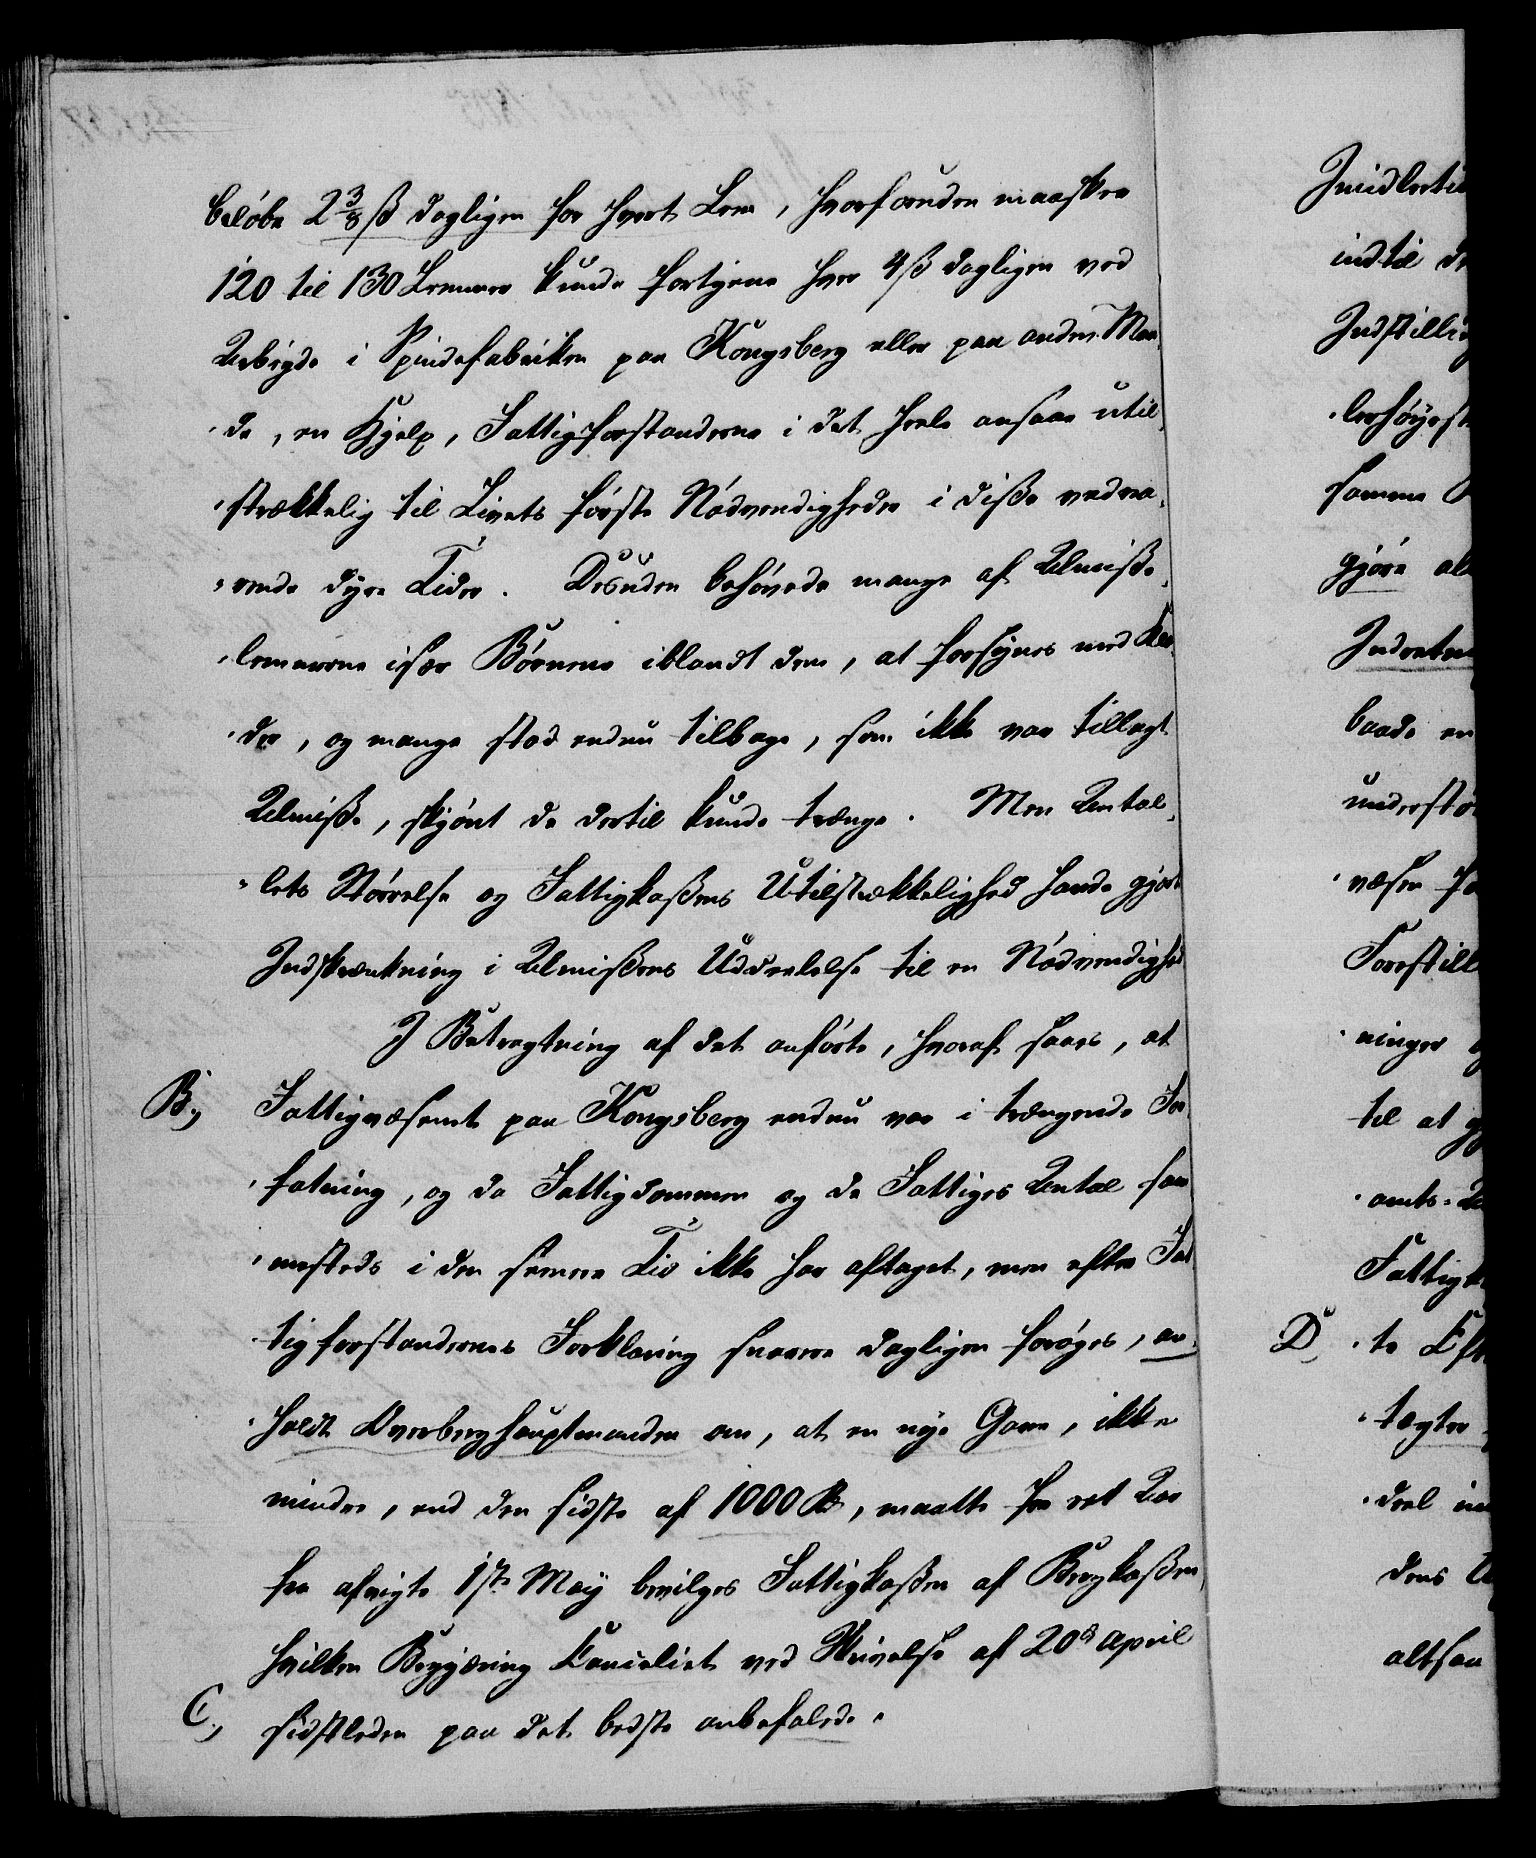 beløbe 2 3/8 ß dagligen for hvert Lem, hvorforuden maaskee
120 til 130 Lemmer kunde fortjene hver 4 ß dagligen ved
Arbejde i Spindefabriken paa Kongsberg eller paa anden Maa¬
de, en Hjelp, Fattigforstanderne i det heele ansaae util¬
strækkelig til Livets første Nødvendigheder i disse nedva¬
rende dyre Tider. Desuden behøvede mange af Almisse¬
lemmerne især Børnene iblandt dem, at forsynes med Klæ¬
der, og mange stod endnu tilbage, som ikke var tillagt
Almisse, skjønt de dertil kunde trænge. Men Antal¬
lets Størrelse og Fattigkassens Utilstrækkelighed havde gjort
Indskrænkning i Almissens Uddeelelse til en Nødvendighed
I Betragtning af det anførte, hvoraf sees, at
B, Fattigvæsenet paa Kongsberg endnu var i trængende For¬
fatning, og da Fattigdommen og de Fattiges Antal sam¬
mesteds i den senere Tid ikke har aftaget, men efter Fat¬
tigforstandernes Forklaring snarere dagligen forøges, an¬
holdt Overberghauptmanden om, at en nye Gave, ikke
mindre, end den sidste af 1000 Rd, maatte for eet Aar
fra afvigte 1ste Maij bevilges Fattigkassen af Bergkassen,
hvilken Begjæring Cancelliet ved Skrivelse af 20de April
C, sidstleden paa det bedste anbefalede.
Imidlertid
indtil
Indstilli
lerhøyest
samme
gjøre
Indretn
baade en
understø
væsen fo
Forestill
ninger
til at
amts-
Fattigk
D, te Eft
tægter
deel
dens
altsaa